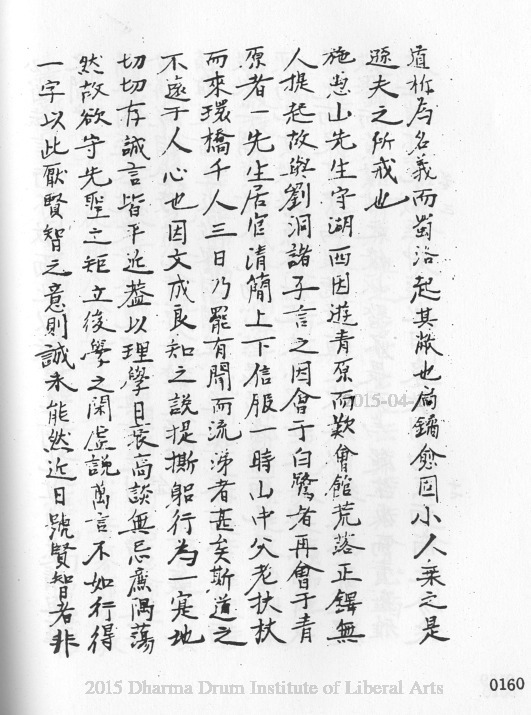 眞称為名義而蜀洛起其敝也扃鐍愈固小人乗之是
遯夫之所戒也
施愚山先生守湖西因遊青原而歎會館荒落正鐸無
人提起故與劉洞諸子言之因會于白鷺者再會于青
原者一先生居官清簡上下信服一時山中父老扶杖
而來環橋千人三日乃罷有聞而流涕者甚矣斯道之
不遠于人心也因文成良知之說提撕躬行為一寔地
切切存誠言皆平近葢以理學日衰高談無忌廉隅蕩
然故欲守先聖之矩立後學之閑虛説萬言不如行得
一字以此厭賢智之意則誠未能然近日號賢智者非
2015-04-
0160
2015 Dharma Drum Institute of Liberal Arts